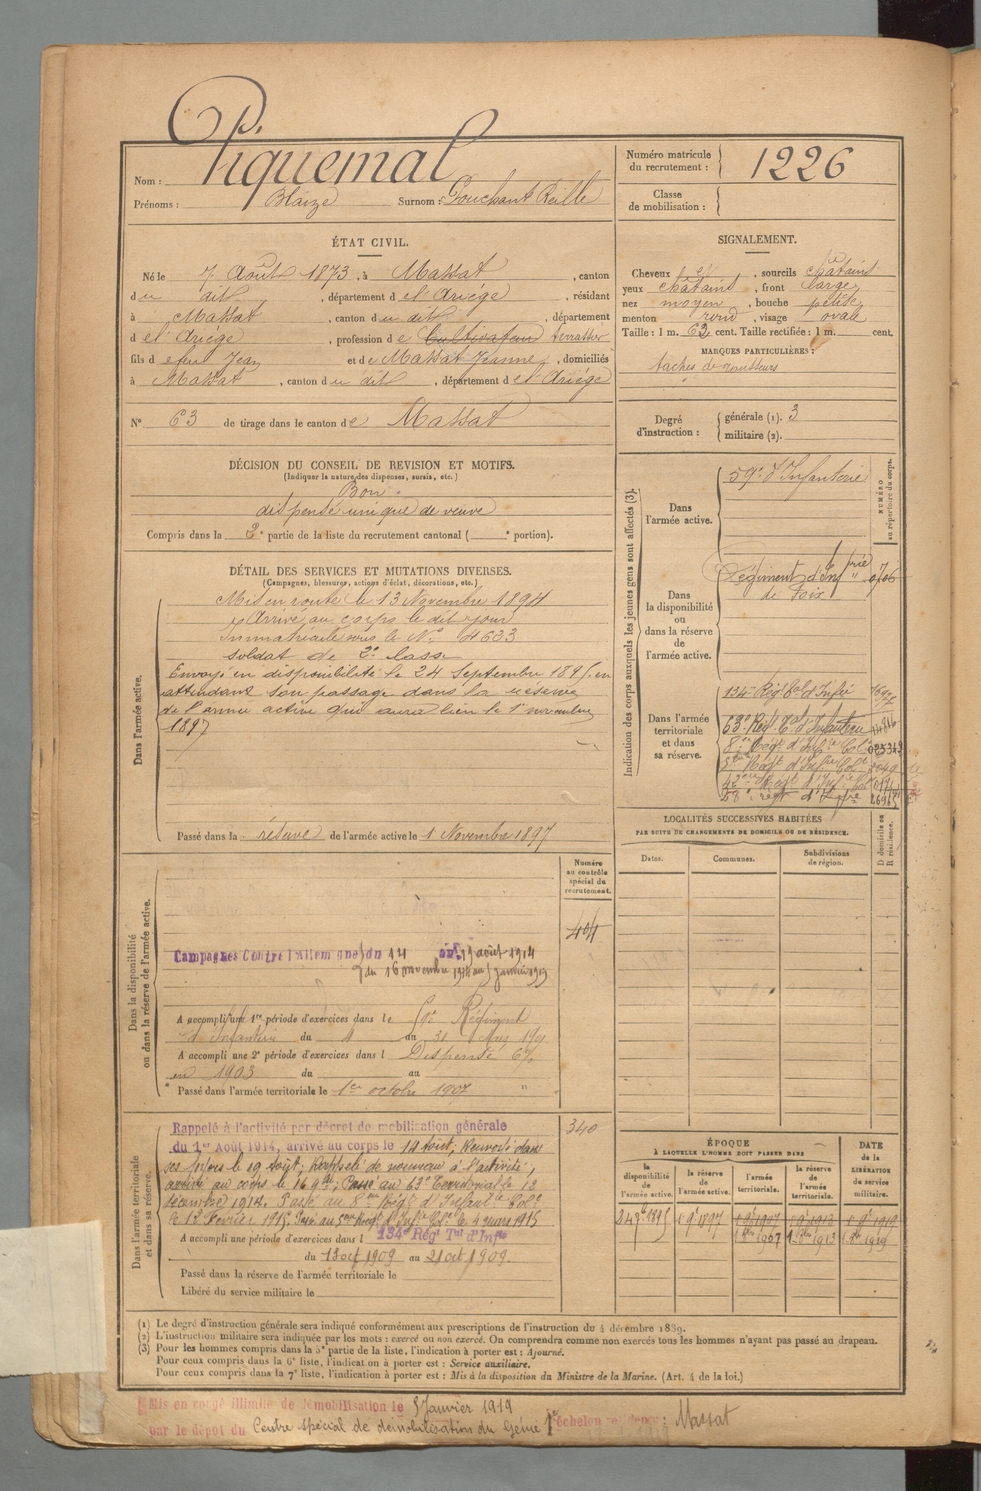 Nom : Piquemal
Prénoms : Blaize Surnom : Pouchant Reille
Numéro matricule du recrutement : 1226
Classe de mobilisation :
ÉTAT CIVIL.
Né le 7 Août 1873, à Massat, canton
du dit, département de l'Ariége, résidant
à Massat, canton du dit, département
de l'Ariége, profession de Cultivateur terrassier
fils de feu Jean et de Massat Jeanne, domiciliés
à Massat, canton du dit, département de l'Ariége
N° 63 de tirage dans le canton de Massat
SIGNALEMENT.
Cheveux et, sourcils châtains
yeux châtains, front large
nez moyen, bouche petite
menton rond, visage ovale
Taille : 1 m. 62 cent. Taille rectifiée : 1 m. cent.
MARQUES PARTICULIÈRES :
taches de rousseurs
Degré d'instruction : générale (1). 3
militaire (2).
DÉCISION DU CONSEIL DE REVISION ET MOTIFS.
(Indiquer la nature des dispenses, sursis, etc.)
Bon
dispensé unique de veuve
Compris dans la 2e partie de la liste du recrutement cantonal ( e portion).
DÉTAIL DES SERVICES ET MUTATIONS DIVERSES.
(Campagnes, blessures, actions d'éclat, décorations, etc.)
Dans l'armée active.
Mis en route le 13 Novembre 1894
Arrivé au corps le dit jour
Immatriculé sous le N° 4633
soldat de 2e classe
Envoyé en disponibilité le 24 Septembre 1895, en
attendant son passage dans la réserve
de l'armée active qui aura lieu le 1er novembre
1897
Passé dans la réserve de l'armée active le 1 Novembre 1897
Indication des corps auxquels les jeunes gens sont affectés (3).
NUMÉRO au répertoire du corps.
Dans l'armée active.
59e d'Infanterie
Dans la disponibilité ou dans la réserve de l'armée active.
Régiment d'Infrie
de Foix
Dans l'armée territoriale et dans sa réserve.
134e Régt tal d'Infie
63e Régt Tal d'Infanterie
8me Régt d'Infie Cole
5me Régt d'Infrie Cole
42me Régt d'Infie Cole
58e régt d'Infie
LOCALITÉS SUCCESSIVES HABITÉES
PAR SUITE DE CHANGEMENTS DE DOMICILE OU DE RÉSIDENCE.
Dates. Communes. Subdivisions de région. D domicile ou R résidence.
Dans la disponibilité ou dans la réserve de l'armée active.
Numéro au contrôle spécial du recrutement.
404
Campagnes Contre l'Allemagne du 14 au 19 août 1914
du 16 novembre 1914 au 5 janvier 1919
A accompli une 1re période d'exercices dans le 59e Régiment
d'infanterie du 4 au 31 Mars 190
A accompli une 2e période d'exercices dans l Dispensé
en 1903 du au
Passé dans l'armée territoriale le 1er octobre 1907
Dans l'armée territoriale et dans sa réserve.
340
Rappelé à l'activité par décret de mobilisation générale
du 1er Août 1914, arrivé au corps le 14 Août; Renvoyé dans
ses foyers le 19 Août; Rappelé de nouveau à l'activité,
arrivé au corps le 16 9bre; Passé au 63e Territorial le 12
décembre 1914. Passé au 8me Régt d'Infantie Cole
le 12 Février 1915. Passé au 5me Régt d'Infie Cole le 4 mars 1915
A accompli une période d'exercices dans l 134e Régt Tal d'Infie
du 13 oct 1909 au 21 oct 1909.
Passé dans la réserve de l'armée territoriale le
Libéré du service militaire le
ÉPOQUE
À LAQUELLE L'HOMME DOIT PASSER DANS
la disponibilité de l'armée active. la réserve de l'armée active. l'armée territoriale. la réserve de l'armée territoriale. DATE de la LIBÉRATION du service militaire.
24 9bre 1895 1 9bre 1897 1 9bre 1907 1 9bre 1913 1 9bre 1919
1 8bre 1907 1 8bre 1913 1 8bre 1919
(1) Le degré d'instruction générale sera indiqué conformément aux prescriptions de l'instruction du 4 décembre 1889.
(2) L'instruction militaire sera indiquée par les mots : exercé ou non exercé. On comprendra comme non exercés tous les hommes n'ayant pas passé au drapeau.
(3) Pour les hommes compris dans la 5e partie de la liste, l'indication à porter est : Ajourné.
Pour ceux compris dans la 6e liste, l'indication à porter est : Service auxiliaire.
Pour ceux compris dans la 7e liste, l'indication à porter est : Mis à la disposition du Ministre de la Marine. (Art. 4 de la loi.)
Mis en congé illimité de démobilisation le 5 Janvier 1919
par le dépôt du Centre spécial de démobilisation du Génie 1er échelon résidence : Massat